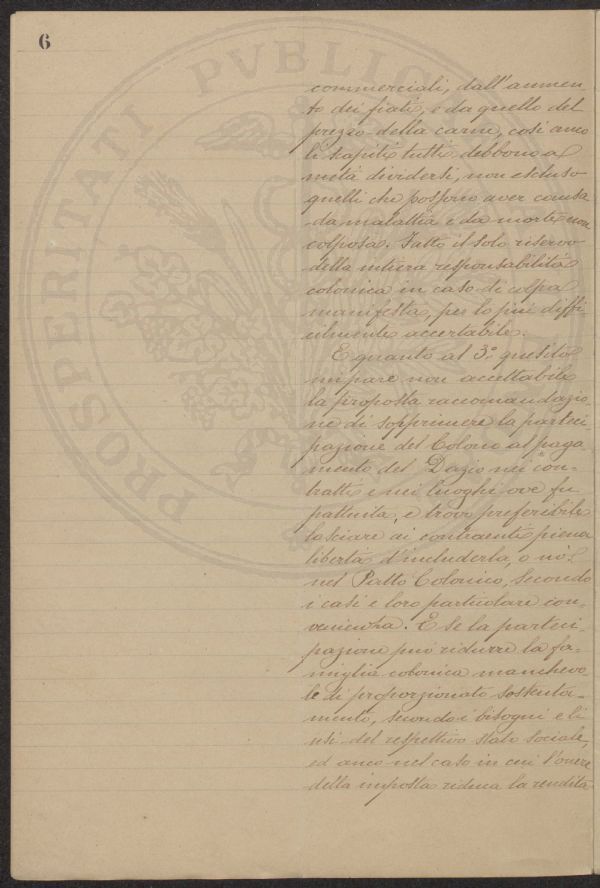 6
PROSPERITATI PVBLICAE
commerciali, dall'aumen
to dei fiati, e da quello del
prezzo della carne, così anco
li scapiti tutti debbono a
metà dividersi, non escluso
quelli che possono aver causa
da malattia e da morte non
colposa. Fatto il solo riservo
della intiera responsabilità
colonica in caso di colpa
manifesta, per lo più diffi
cilmente accertabile.
E quanto al 3º quesito
mi pare non accettabile
la proposta raccomandazio
ne di sopprimere la parteci
pazione del Colono al paga
mento del Dazio nei con-
tratti e nei luoghi ove fu
pattuita, e trovo preferibile
lasciare ai contraenti piena
libertà d'includerla, o nò
nel Patto Colonico, secondo
i casi e loro particolare con-
venienza. E se la parteci-
pazione può ridurre la fa-
miglia colonica manchevo
le di proporzionato sostenta-
mento, secondo i bisogni e li
usi del rispettivo stato sociale,
ed anco nel caso in cui l'onere
della imposta riduca la rendita